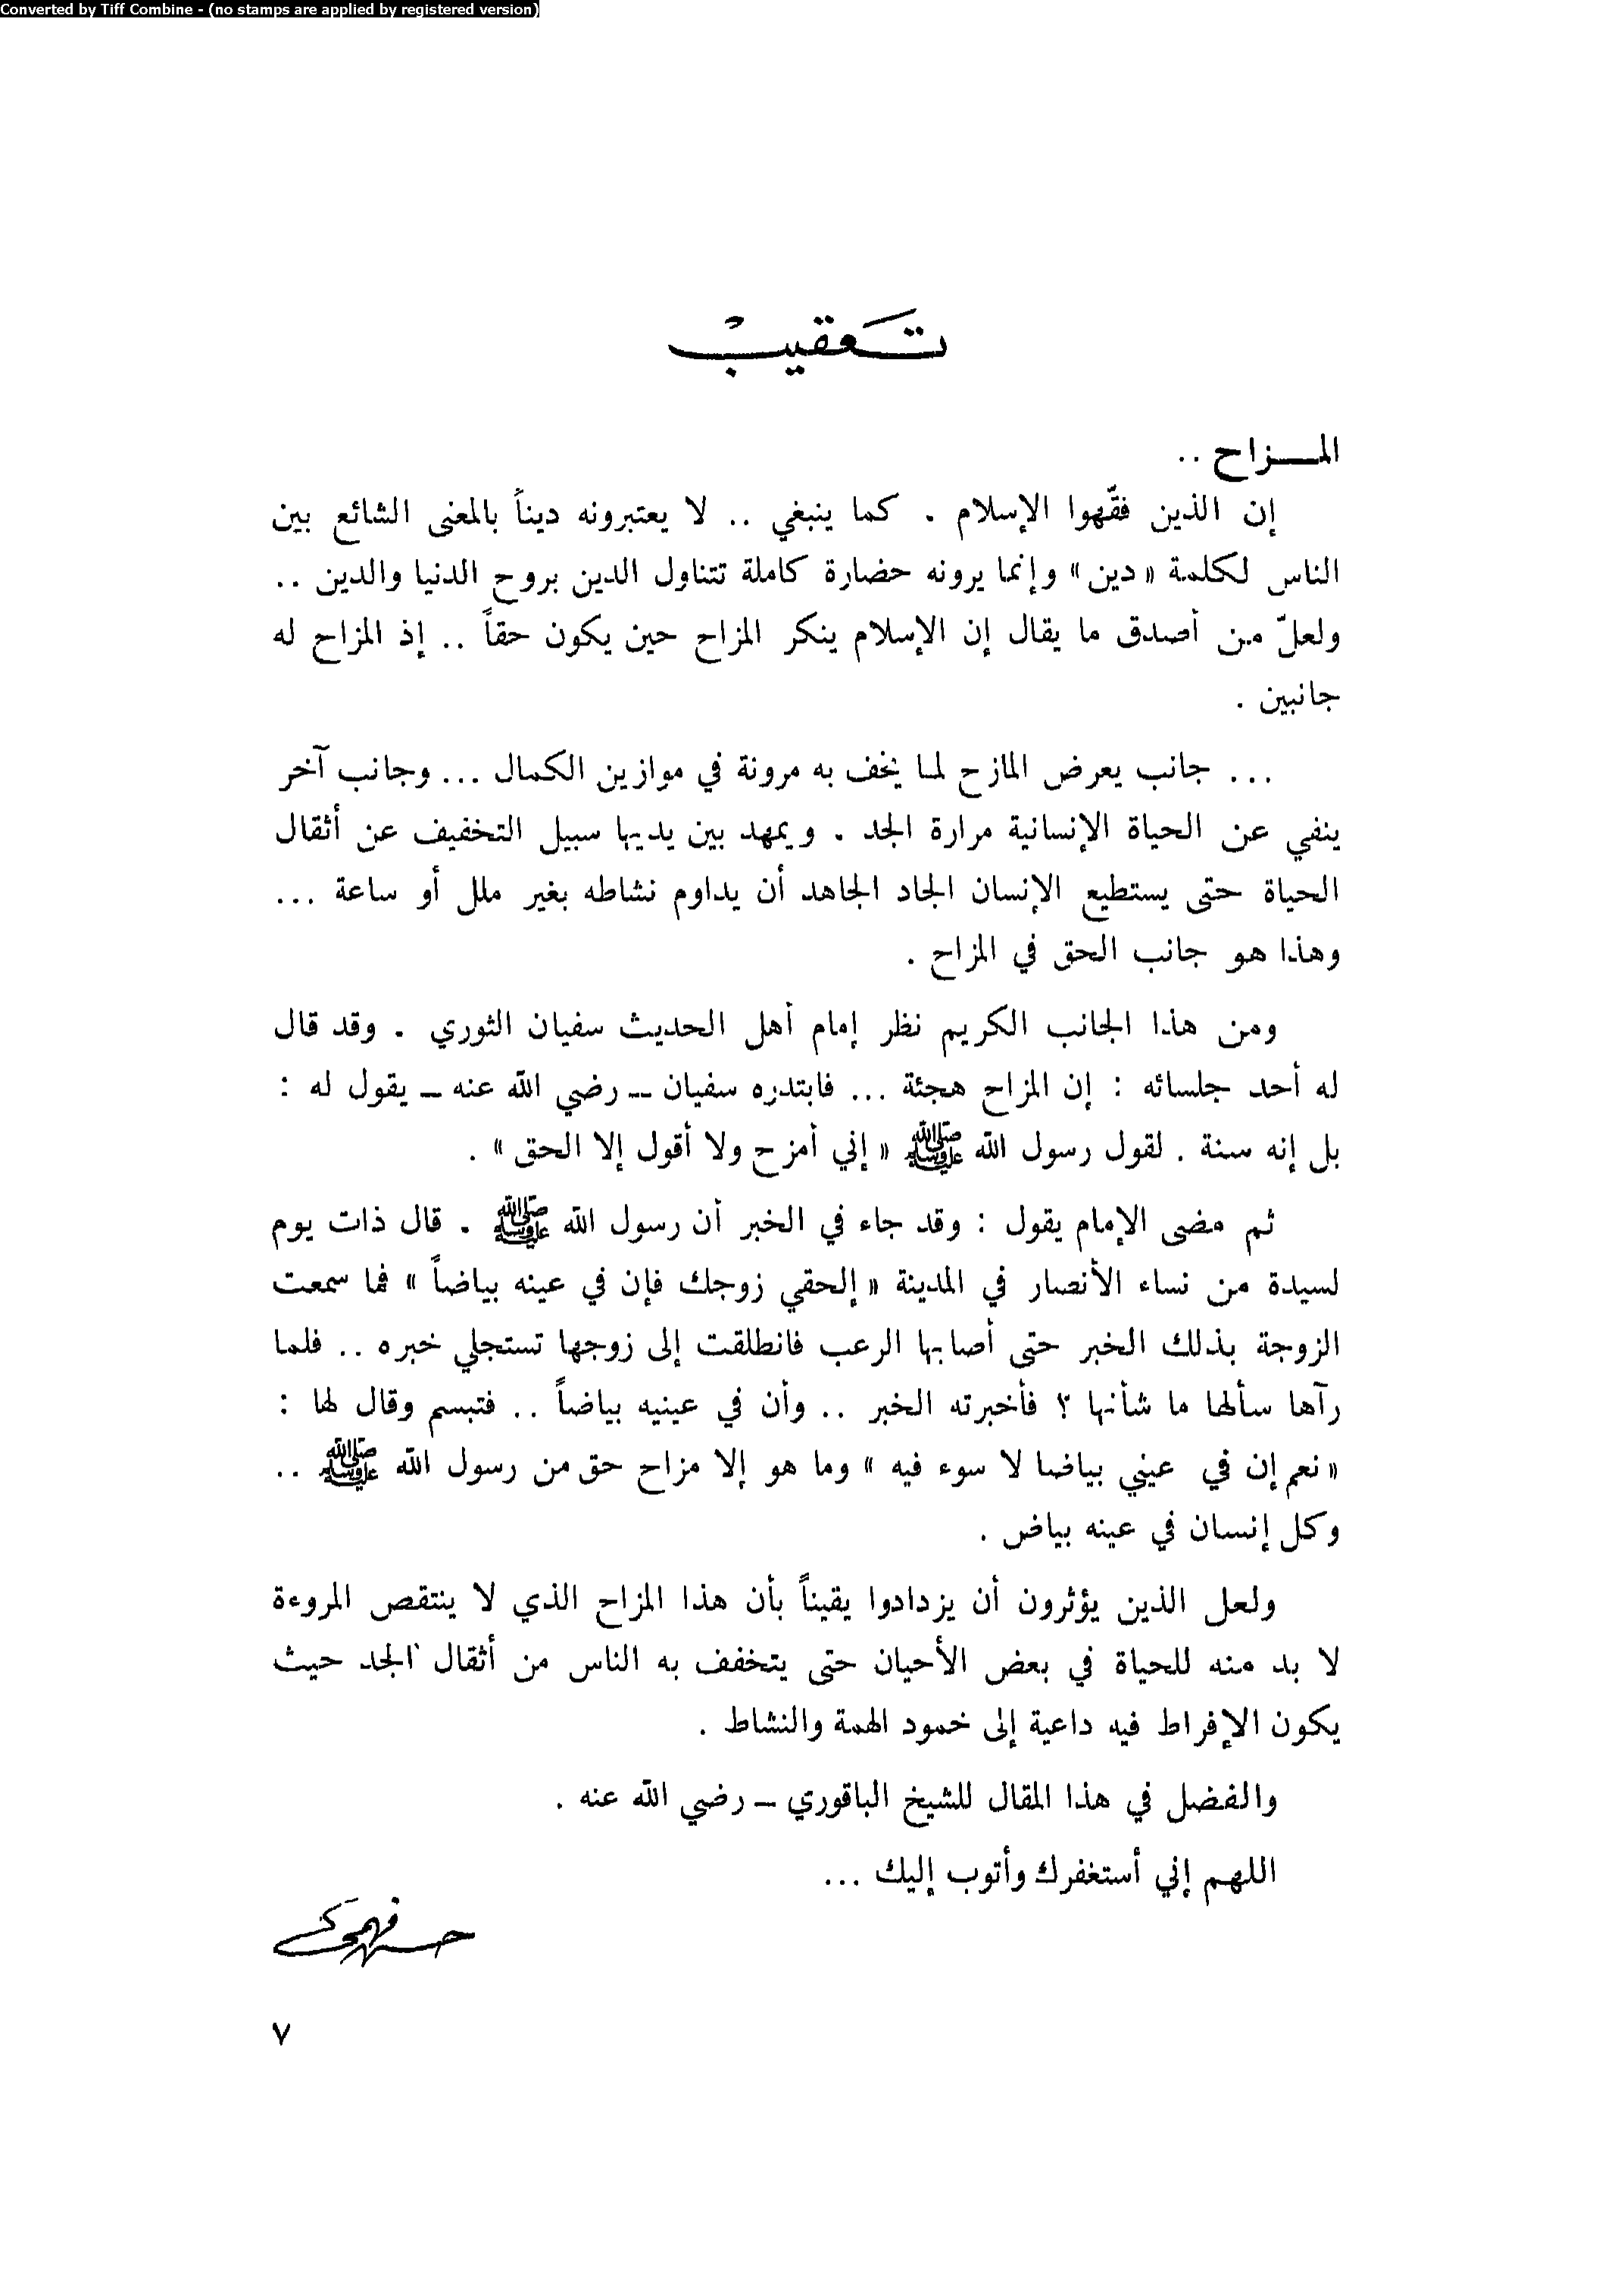 Converted by Tiff Combine - (no stamps are applied by registered version)
تعقيب
المزاح ..
إن الذين فقّهوا الإسلام . كما ينبغي .. لا يعتبرونه ديناً بالمعنى الشائع بين
الناس لكلمة « دين » وإنما يرونه حضارة كاملة تتناول الدين بروح الدنيا والدين ..
ولعلّ من أصدق ما يقال إن الإسلام ينكر المزاح حين يكون حقاً .. إذ المزاح له
جانبين .
... جانب يعرض المازح لما يخف به مرونة في موازين الكمال ... وجانب آخر
ينفي عن الحياة الإنسانية مرارة الجد . ويمهد بين يديها سبيل التخفيف عن أثقال
الحياة حتى يستطيع الإنسان الجاد الجاهد أن يداوم نشاطه بغير ملل أو ساعة ...
وهذا هو جانب الحق في المزاح .
ومن هذا الجانب الكريم نظر إمام أهل الحديث سفيان الثوري . وقد قال
له أحد جلسائه : إن المزاح هجئة ... فابتدره سفيان – رضي الله عنه – يقول له :
بل إنه سنة . لقول رسول الله ﷺ « إني أمزح ولا أقول إلا الحق » .
ثم مضى الإمام يقول : وقد جاء في الخبر أن رسول الله ﷺ . قال ذات يوم
لسيدة من نساء الأنصار في المدينة « إلحقي زوجك فإن في عينه بياضاً » فما سمعت
الزوجة بذلك الخبر حتى أصابها الرعب فانطلقت إلى زوجها تستجلي خبره .. فلما
رآها سألها ما شأنها ؟ فأخبرته الخبر .. وأن في عينيه بياضاً .. فتبسم وقال لها :
« نعم إن في عيني بياضا لا سوء فيه » وما هو إلا مزاح حق من رسول الله ﷺ ..
وكل إنسان في عينه بياض .
ولعل الذين يؤثرون أن يزدادوا يقيناً بأن هذا المزاح الذي لا ينتقص المروءة
لا بد منه للحياة في بعض الأحيان حتى يتخفف به الناس من أثقال الجد حيث
يكون الإفراط فيه داعية إلى خمود الهمة والنشاط .
والفضل في هذا المقال للشيخ الباقوري – رضي الله عنه .
اللهم إني أستغفرك وأتوب إليك ...
٧